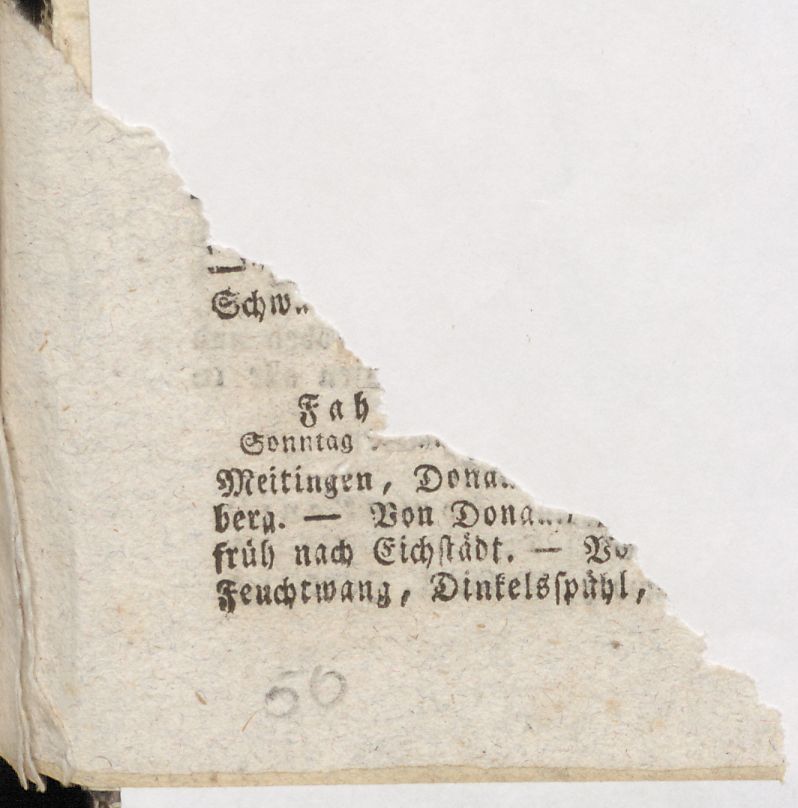 Fah
Sonntag
Meitingen, Donau
berg. — Von Donau
früh nach Eichstädt. —
Feuchtwang, Dinkelsspühl,
56